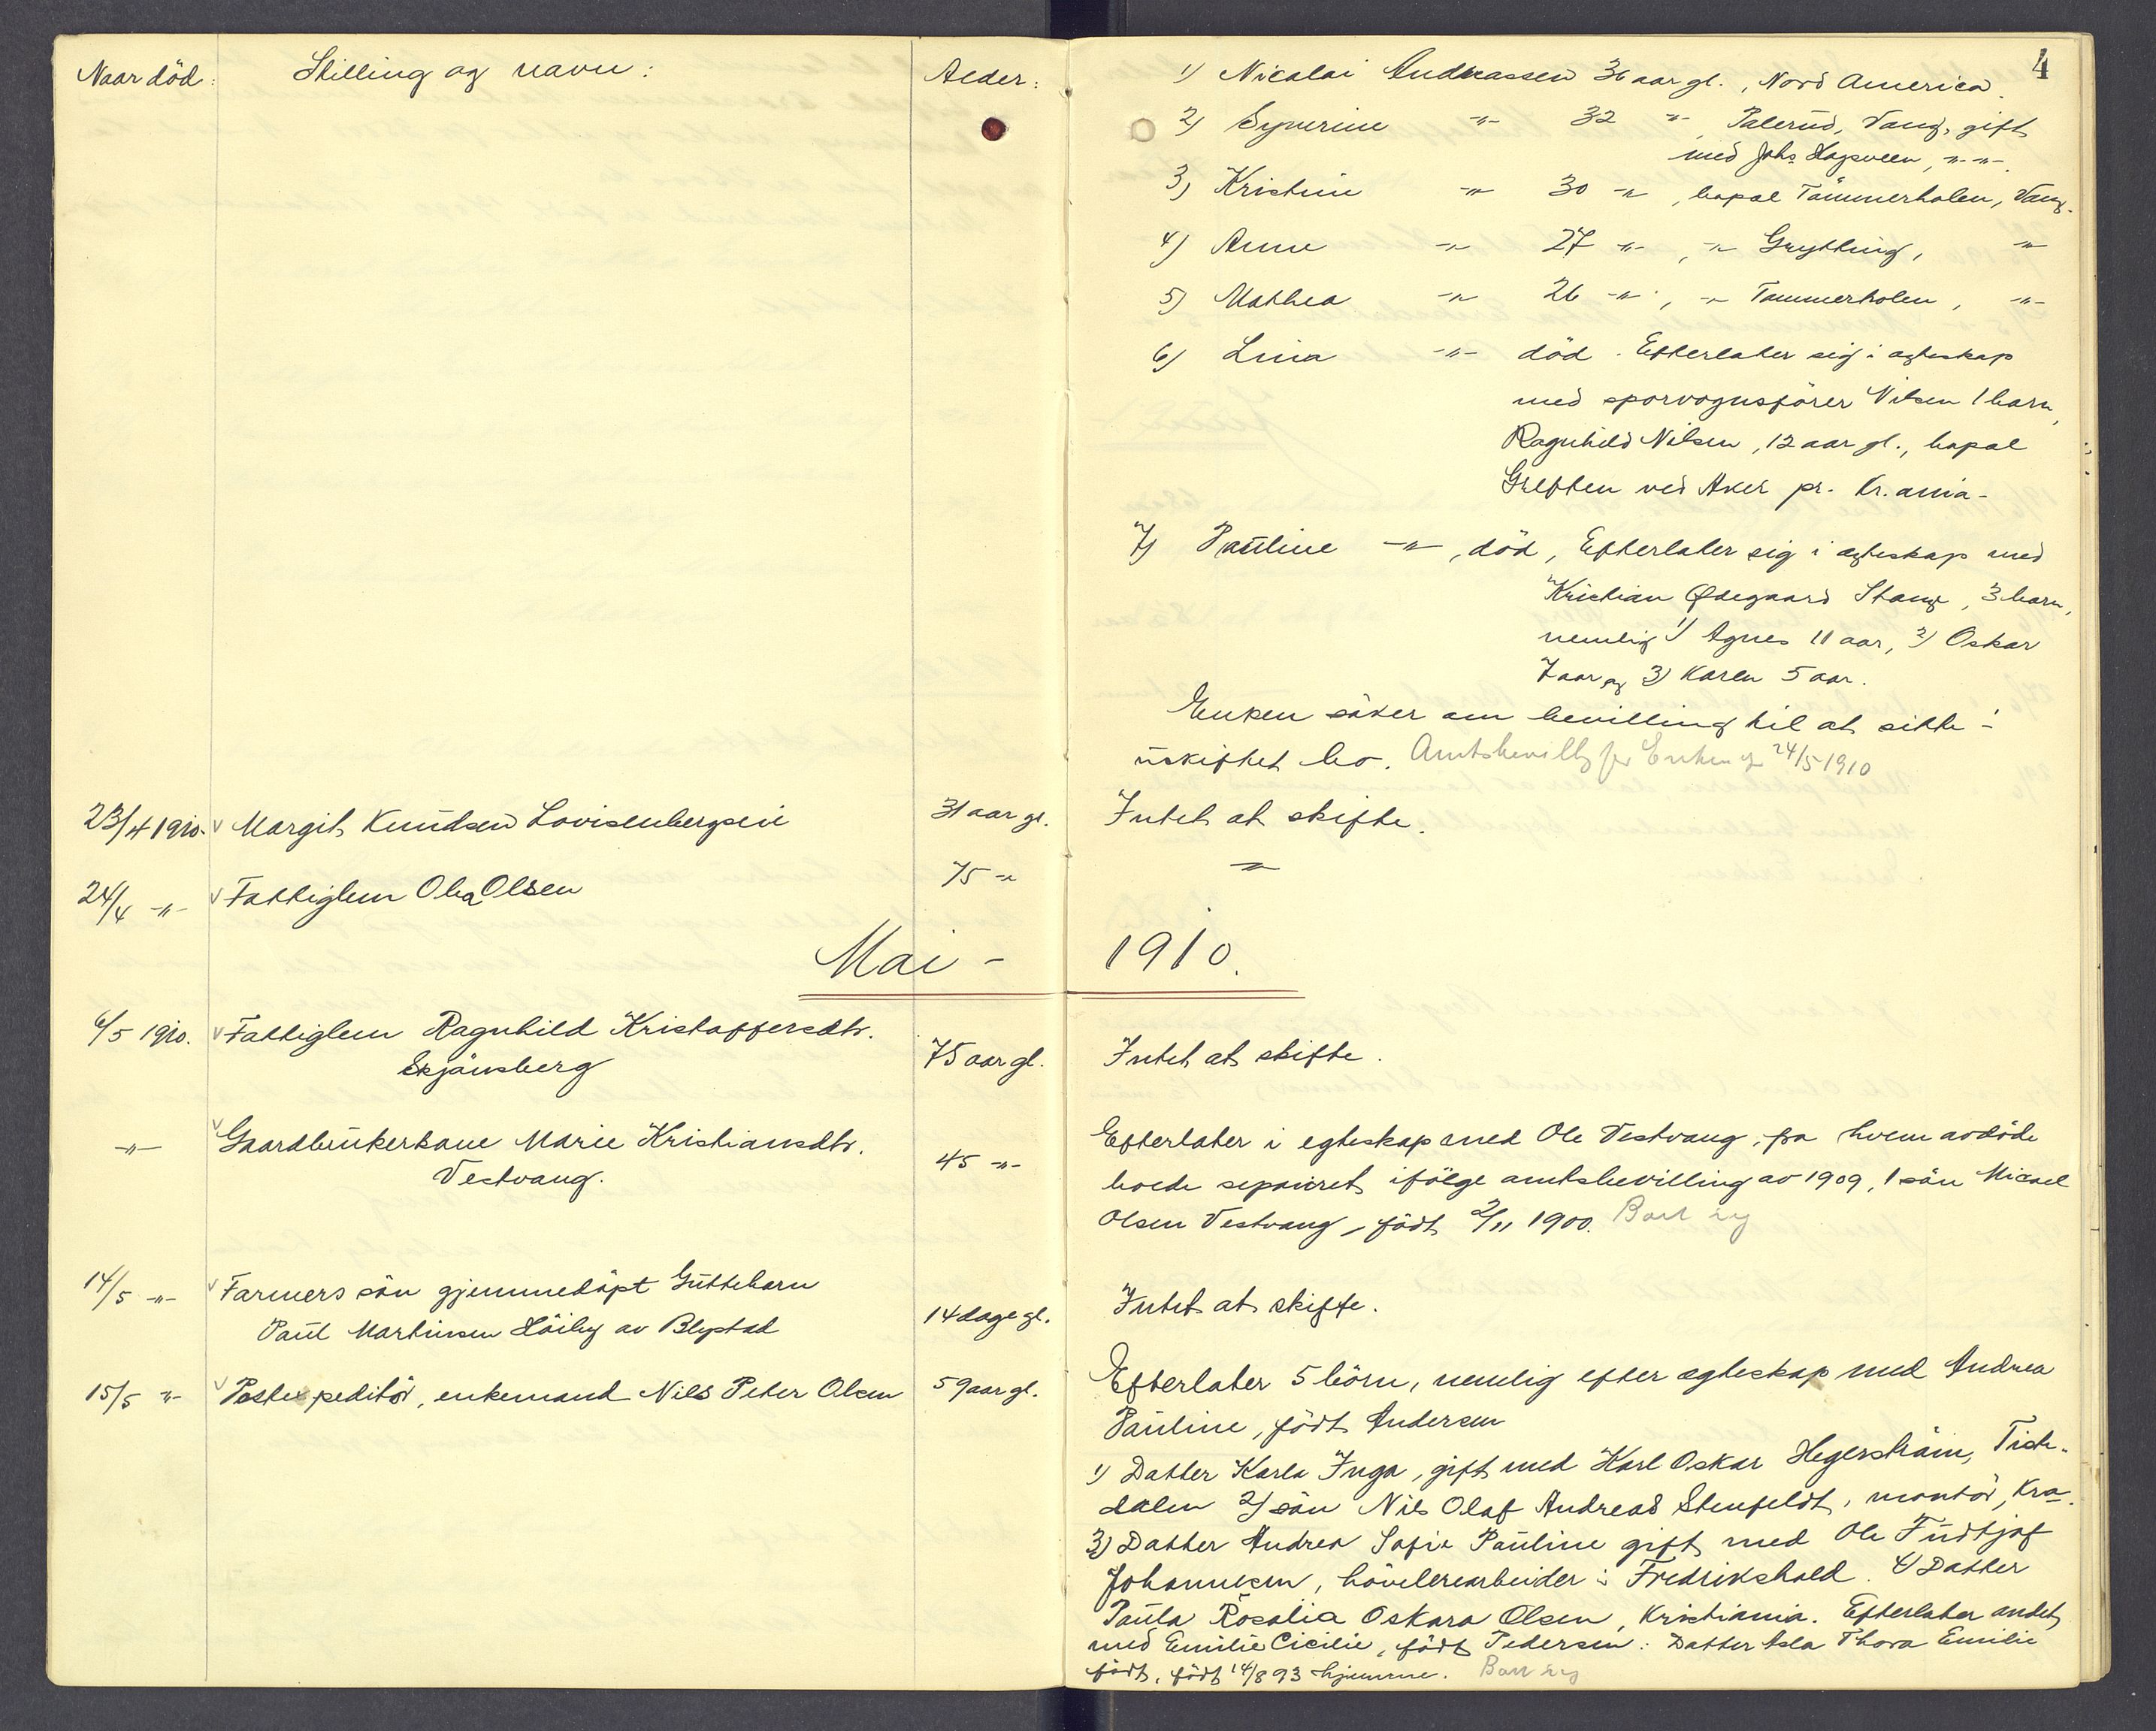 Naar död: Stilling og navn: Alder:
4
1) Nicolai Andreassen 36 aar gl., Nord America.
2) Syverine -"- 32 -"- Palerud, Vang, gift
med Johs Hagsveen, -"-"-.
3) Kristine -"- 30 -"-, bopæl Tömmerholen, Vang.
4) Anne -"- 27 -"-, -"- Grytting, -"-
5) Mathea -"- 26 -"-, -"- Tømmerholen, -"-
6) Lina -"- död. Efterlater sig i ægteskap
med sporvognsförer Nilsen 1 barn,
Ragnhild Nilsen, 12 aar gl., bopæl
Greften ved Aker pr. Kr.ania-
7) Pauline -"-, död, Efterlater sig i ægteskap med
Kristian Ødegaard Stange, 3 barn,
nemlig 1) Agnes 11 aar, 2) Oskar
7 aar og 3) Karen 5 aar.
Enken söker om bevilling til at sitte i
uskiftet bo. Amtsbevillg for Enken 24/5 1910
23/4 1910. Margit Knudsen Lovisenbergsvei 31 aar gl. Intet at skifte.
24/4 -"- Fattiglem Olea Olsen 75 -"- -"-
Mai - 1910.
6/5 1910. Fattiglem Ragnhild Kristoffersdtr.
Skjönsberg 75 aar gl. Intet at skifte.
-"- Gaardbrukerkone Marie Kristiansdtr.
Vestvang. 45 -"-
Efterlater i egteskap med Ole Vestvang, fra hvem avdöde
levde separeret ifölge amtsbevilling av 1909, 1 sön Micael
Olsen Vestvang, födt 2/11 1900.
14/5 -"- Farmers sön gjemmedöpt Guttebarn
Paul Martinsen Höiby av Blystad 14 dage gl. Intet at skifte.
15/5 -"- Postexpeditör, enkemand Nils Peter Olsen 59 aar gl.
Efterlater 5 börn, nemlig efter ægteskap med Andrea
Pauline, födt Andersen
1) Datter Karla Inga, gift med Karl Oskar Hegerström, Tiste-
dalen 2) sön Nils Olaf Andreas Stenfeldt, montör, Kra.
3) Datter Andrea Sofie Pauline gift med Ole Fridtjof
Johannesen, hövlerearbeider i Fredrikshald. 4) Datter
Paula Rosalia Oskara Olsen, Kristiania. Efterlater andet
med Emilie Cicilie, födt Pedersen: Datter Asla Thora Emilie
födt, födt 14/8 93 hjemme.